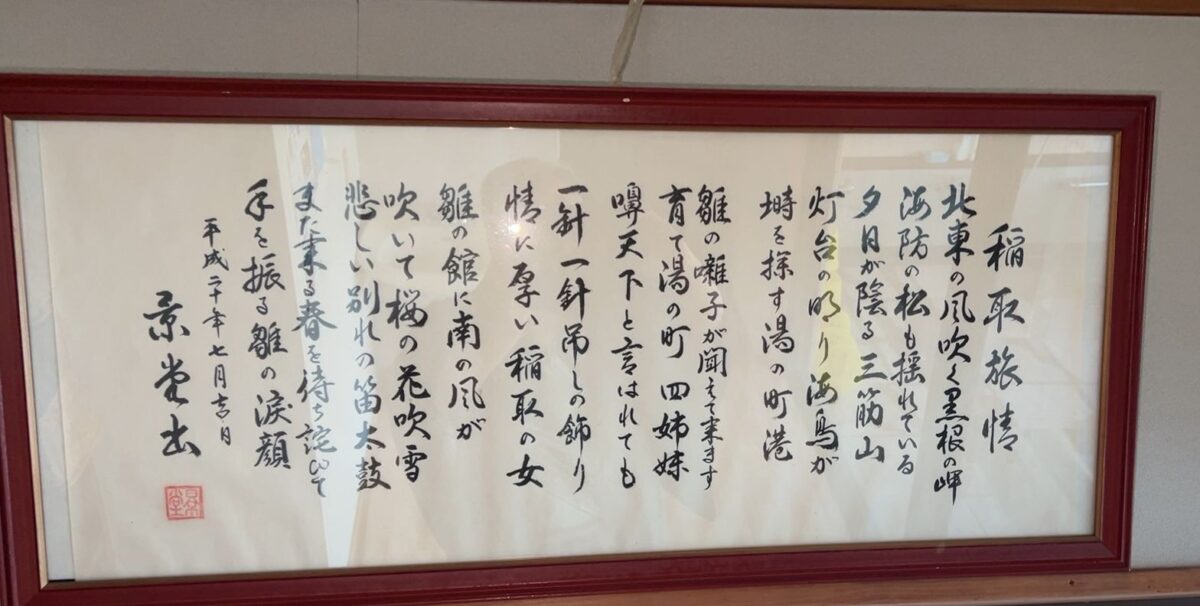 稲取旅情
北東の風吹く黒根の岬
海防の松も揺れている
夕日が陰る三筋山
灯台の明り海鳥が
塒を探す湯の町港
雛の囃子が聞えて来ます
育て湯の町 四姉妹
嚊天下と言はれても
一針一針吊しの飾り
情に厚い稲取の女
雛の館に南の風が
吹いて桜の花吹雪
悲しい別れの笛太鼓
また来る春を待ち詫びて
手を振る雛の涙顔
平成二十年七月吉日